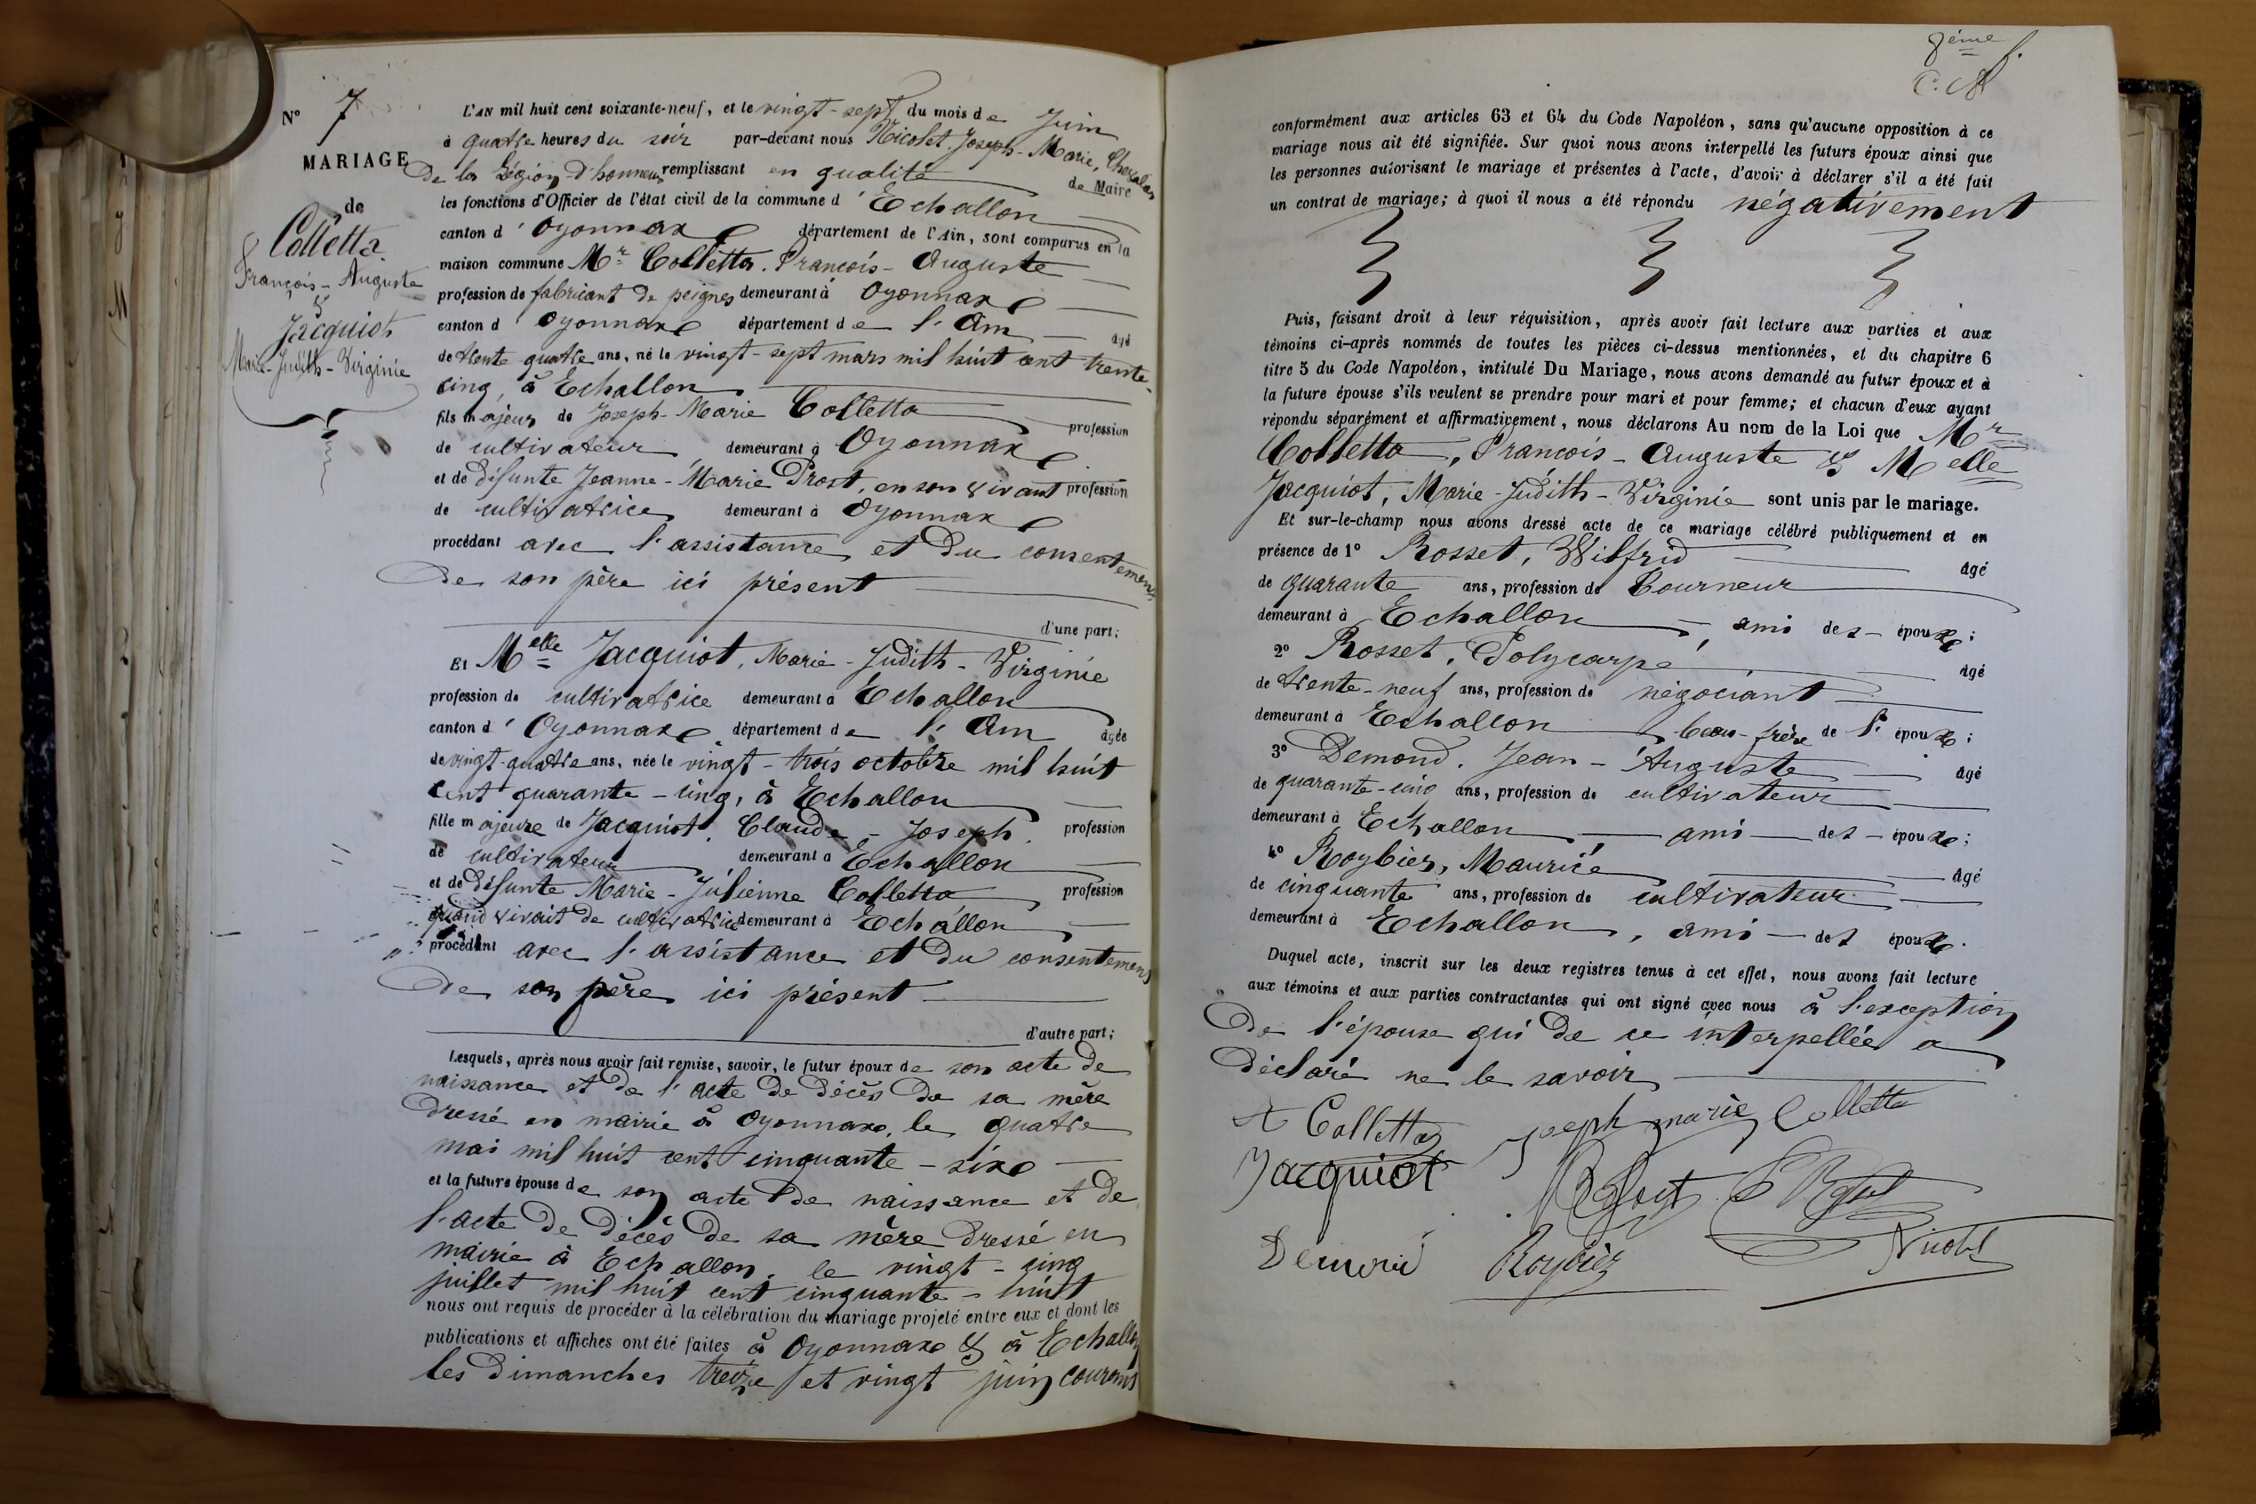 N° 7
MARIAGE
de
Colletta
François - Auguste
&
Jacquiot
Marie - Judith - Virginie
L'AN mil huit cent soixante-neuf, et le vingt - sept du mois de Juin
à quatre heures du soir par-devant nous Nicolet, Joseph - Marie, Chevalier
De la Légion d'honneur remplissant en qualité de Maire
les fonctions d'Officier de l'état civil de la commune d'Echallon
canton d'Oyonnax département de l'Ain, sont comparus en la
maison commune Mr Colletta, François - Auguste
profession de fabricant de peignes demeurant à Oyonnax
canton d'Oyonnax département de l'Ain âgé
de trente quatre ans, né le vingt - sept mars mil huit cent trente-
cinq, à Echallon
fils majeur de Joseph - Marie Colletta profession
de cultivateur demeurant à Oyonnax
et de défunte Jeanne - Marie Prost, en son vivant profession
de cultivatrice demeurant à Oyonnax
procédant avec l'assistance et du consentement
De son père ici présent
d'une part;
Et Melle Jacquiot, Marie - Judith - Virginie
profession de cultivatrice demeurant à Echallon
canton d'Oyonnax département de l'Ain âgée
de vingt-quatre ans, née le vingt - trois octobre mil huit
cent quarante - cinq, à Echallon
fille majeure de Jacquiot, Claude - Joseph profession
de cultivateur demeurant à Echallon
et de défunte Marie - Julienne Colletta profession
quand vivait de cultivatrice demeurant à Echallon
procédant avec l'assistance et du consentement
De son père ici présent
d'autre part;
Lesquels, après nous avoir fait remise, savoir, le futur époux de son acte de
naissance et de l'acte de décès de sa mère
dressé en mairie à Oyonnax, le quatre
mai mil huit cent cinquante - six
et la future épouse de son acte de naissance et de
l'acte de décès de sa mère dressé en
mairie à Echallon, le vingt - cinq
juillet mil huit cent cinquante - huit
nous ont requis de procéder à la célébration du mariage projeté entre eux et dont les
publications et affiches ont été faites à Oyonnax & à Echallon
les Dimanches treize et vingt juin courant
8ème f.
conformément aux articles 63 et 64 du Code Napoléon, sans qu'aucune opposition à ce
mariage nous ait été signifiée. Sur quoi nous avons interpellé les futurs époux ainsi que
les personnes autorisant le mariage et présentes à l'acte, d'avoir à déclarer s'il a été fait
un contrat de mariage; à quoi il nous a été répondu négativement
Puis, faisant droit à leur réquisition, après avoir fait lecture aux parties et aux
témoins ci-après nommés de toutes les pièces ci-dessus mentionnées, et du chapitre 6
titre 5 du Code Napoléon, intitulé Du Mariage, nous avons demandé au futur époux et à
la future épouse s'ils veulent se prendre pour mari et pour femme; et chacun d'eux ayant
répondu séparément et affirmativement, nous déclarons Au nom de la Loi que Mr
Colletta, François - Auguste & Melle
Jacquiot, Marie - Judith - Virginie sont unis par le mariage.
Et sur-le-champ nous avons dressé acte de ce mariage célébré publiquement et en
présence de 1° Rosset, Wilfrid âgé
de quarante ans, profession de Tourneur
demeurant à Echallon, ami des époux;
2° Rosset, Polycarpe âgé
de trente - neuf ans, profession de négociant
demeurant à Echallon beau - frère de l'époux;
3° Demond, Jean - Auguste âgé
de quarante - cinq ans, profession de cultivateur
demeurant à Echallon, ami des époux;
4° Roybier, Maurice âgé
de cinquante ans, profession de cultivateur
demeurant à Echallon, ami des époux.
Duquel acte, inscrit sur les deux registres tenus à cet effet, nous avons fait lecture
aux témoins et aux parties contractantes qui ont signé avec nous à l'exception
De l'épouse qui de ce interpellée a
déclaré ne le savoir
A Colletta Joseph marie Colletta
Jacquiot
Demond Roybier Nicolet